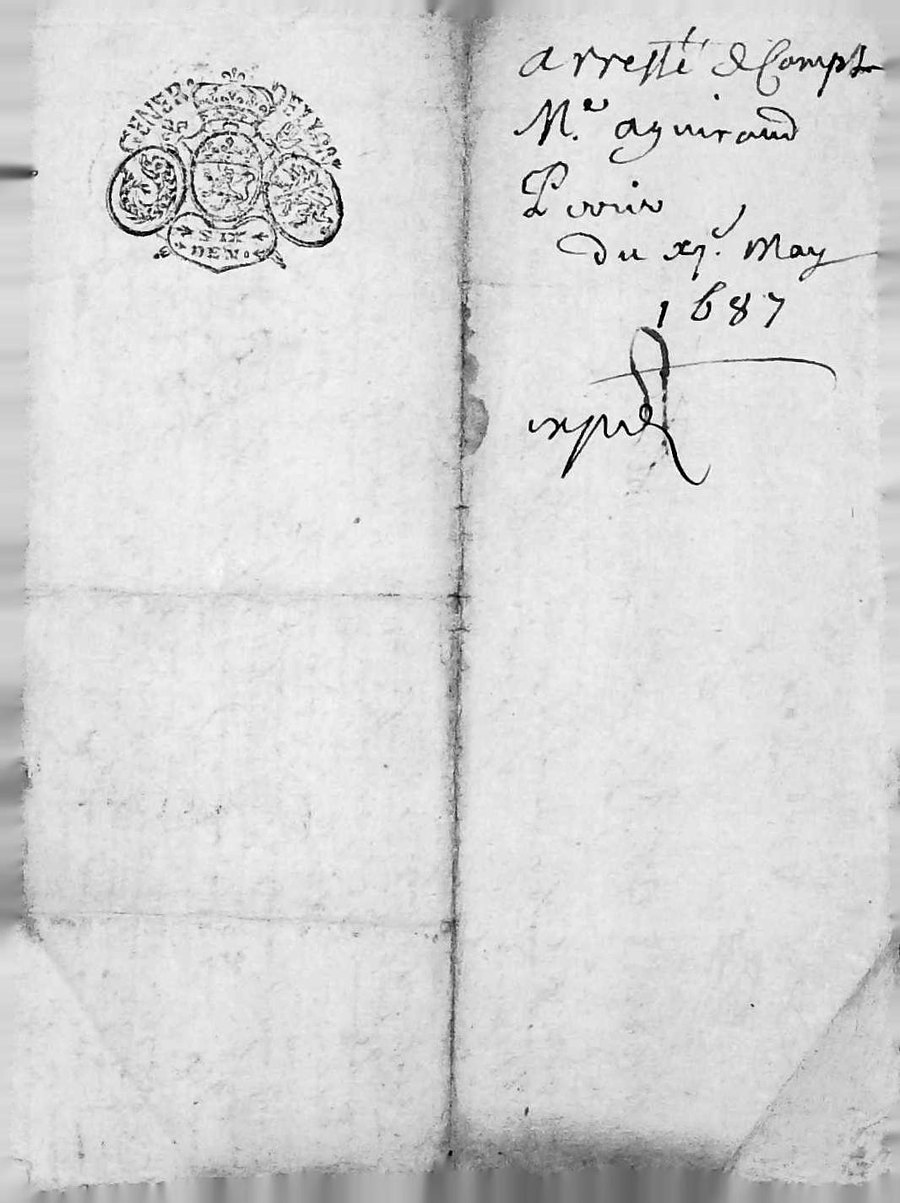 GENER. DE LYON
SIX
DEN.
arresté de Compte
M.e aguiraud
du xj.e May
1687
expedié